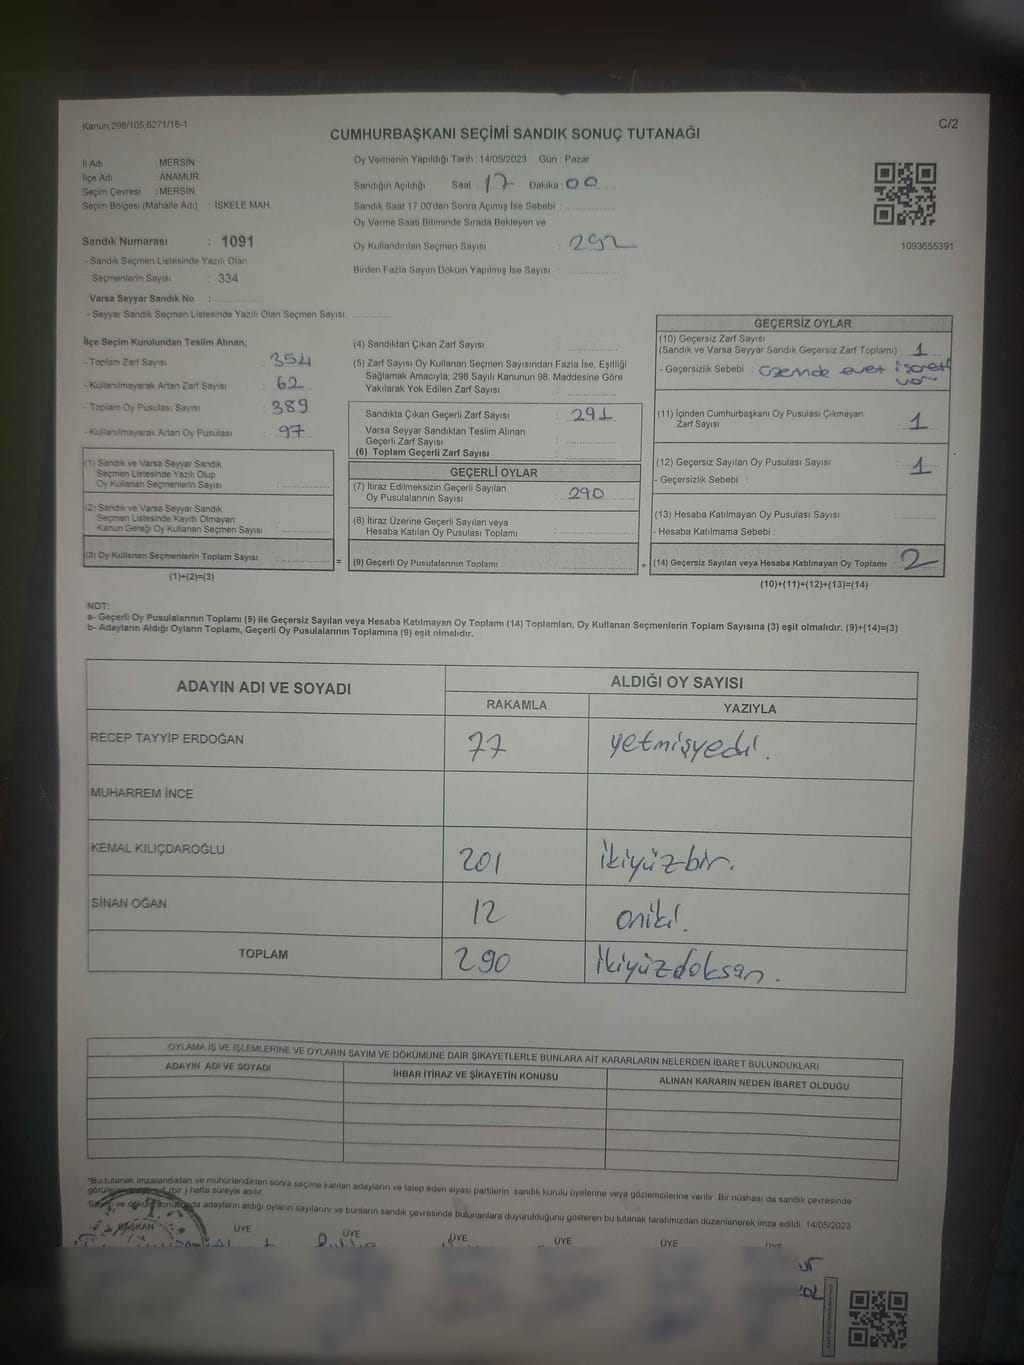 Kanun,298/105,6271/18-1
C/2
CUMHURBAŞKANI SEÇİMİ SANDIK SONUÇ TUTANAĞI
İl Adı : MERSİN
İlçe Adı : ANAMUR
Seçim Çevresi : MERSİN
Seçim Bölgesi (Mahalle Adı) : İSKELE MAH.
Sandık Numarası : 1091
- Sandık Seçmen Listesinde Yazılı Olan
Seçmenlerin Sayısı : 334
Varsa Seyyar Sandık No :
- Seyyar Sandık Seçmen Listesinde Yazılı Olan Seçmen Sayısı:
Oy Vermenin Yapıldığı Tarih : 14/05/2023 Gün : Pazar
Sandığın Açıldığı Saat : 17 Dakika : 00
Sandık Saat 17:00'den Sonra Açımış İse Sebebi :
Oy Verme Saati Bitiminde Sırada Bekleyen ve
Oy Kullandırılan Seçmen Sayısı : 292
Birden Fazla Sayım Döküm Yapılmış İse Sayısı :
1093655391
İlçe Seçim Kurulundan Teslim Alınan;
- Toplam Zarf Sayısı : 354
- Kullanılmayarak Artan Zarf Sayısı : 62
- Toplam Oy Pusulası Sayısı : 389
- Kullanılmayarak Artan Oy Pusulası : 97
(1) Sandık ve Varsa Seyyar Sandık
Seçmen Listesinde Yazılı Olup
Oy Kullanan Seçmenlerin Sayısı :
(2) Sandık ve Varsa Seyyar Sandık
Seçmen Listesinde Kayıtlı Olmayan
Kanun Gereği Oy Kullanan Seçmen Sayısı :
(3) Oy Kullanan Seçmenlerin Toplam Sayısı : =
(1)+(2)=(3)
(4) Sandıktan Çıkan Zarf Sayısı :
(5) Zarf Sayısı Oy Kullanan Seçmen Sayısından Fazla İse, Eşitliği
Sağlamak Amacıyla, 298 Sayılı Kanunun 98. Maddesine Göre
Yakılarak Yok Edilen Zarf Sayısı :
Sandıkta Çıkan Geçerli Zarf Sayısı : 291
Varsa Seyyar Sandıktan Teslim Alınan
Geçerli Zarf Sayısı :
(6) Toplam Geçerli Zarf Sayısı :
GEÇERLİ OYLAR
(7) İtiraz Edilmeksizin Geçerli Sayılan
Oy Pusulalarının Sayısı : 290
(8) İtiraz Üzerine Geçerli Sayılan veya
Hesaba Katılan Oy Pusulası Toplamı :
(9) Geçerli Oy Pusulalarının Toplamı : +
GEÇERSİZ OYLAR
(10) Geçersiz Zarf Sayısı
(Sandık ve Varsa Seyyar Sandık Geçersiz Zarf Toplamı) : 1
- Geçersizlik Sebebi : üzerinde evet işareti
var
(11) İçinden Cumhurbaşkanı Oy Pusulası Çıkmayan
Zarf Sayısı : 1
(12) Geçersiz Sayılan Oy Pusulası Sayısı : 1
- Geçersizlik Sebebi :
(13) Hesaba Katılmayan Oy Pusulası Sayısı :
- Hesaba Katılmama Sebebi :
(14) Geçersiz Sayılan veya Hesaba Katılmayan Oy Toplamı : 2
(10)+(11)+(12)+(13)=(14)
NOT:
a- Geçerli Oy Pusulalarının Toplamı (9) ile Geçersiz Sayılan veya Hesaba Katılmayan Oy Toplamı (14) Toplamları, Oy Kullanan Seçmenlerin Toplam Sayısına (3) eşit olmalıdır. (9)+(14)=(3)
b- Adayların Aldığı Oyların Toplamı, Geçerli Oy Pusulalarının Toplamına (9) eşit olmalıdır.
ADAYIN ADI VE SOYADI ALDIĞI OY SAYISI
RAKAMLA YAZIYLA
RECEP TAYYİP ERDOĞAN 77 yetmişyedi.
MUHARREM İNCE
KEMAL KILIÇDAROĞLU 201 ikiyüzbir.
SİNAN OĞAN 12 oniki.
TOPLAM 290 ikiyüzdoksan.
OYLAMA İŞ VE İŞLEMLERİNE VE OYLARIN SAYIM VE DÖKÜMÜNE DAİR ŞİKAYETLERLE BUNLARA AİT KARARLARIN NELERDEN İBARET BULUNDUKLARI
ADAYIN ADI VE SOYADI İHBAR İTİRAZ VE ŞİKAYETİN KONUSU ALINAN KARARIN NEDEN İBARET OLDUĞU
*Bu tutanak imzalandıktan ve mühürlendikten sonra seçime katılan adayların ve talep eden siyasi partilerin sandık kurulu üyelerine veya gözlemcilerine verilir. Bir nüshası da sandık çevresinde
(bir) hafta süreyle asılır.
Sayım ve döküm sonucunda adayların aldığı oyların sayılarını ve bunların sandık çevresinde bulunanlara duyurulduğunu gösteren bu tutanak tarafımızdan düzenlenerek imza edildi. 14/05/2023
BAŞKAN ÜYE ÜYE ÜYE ÜYE ÜYE ÜYE